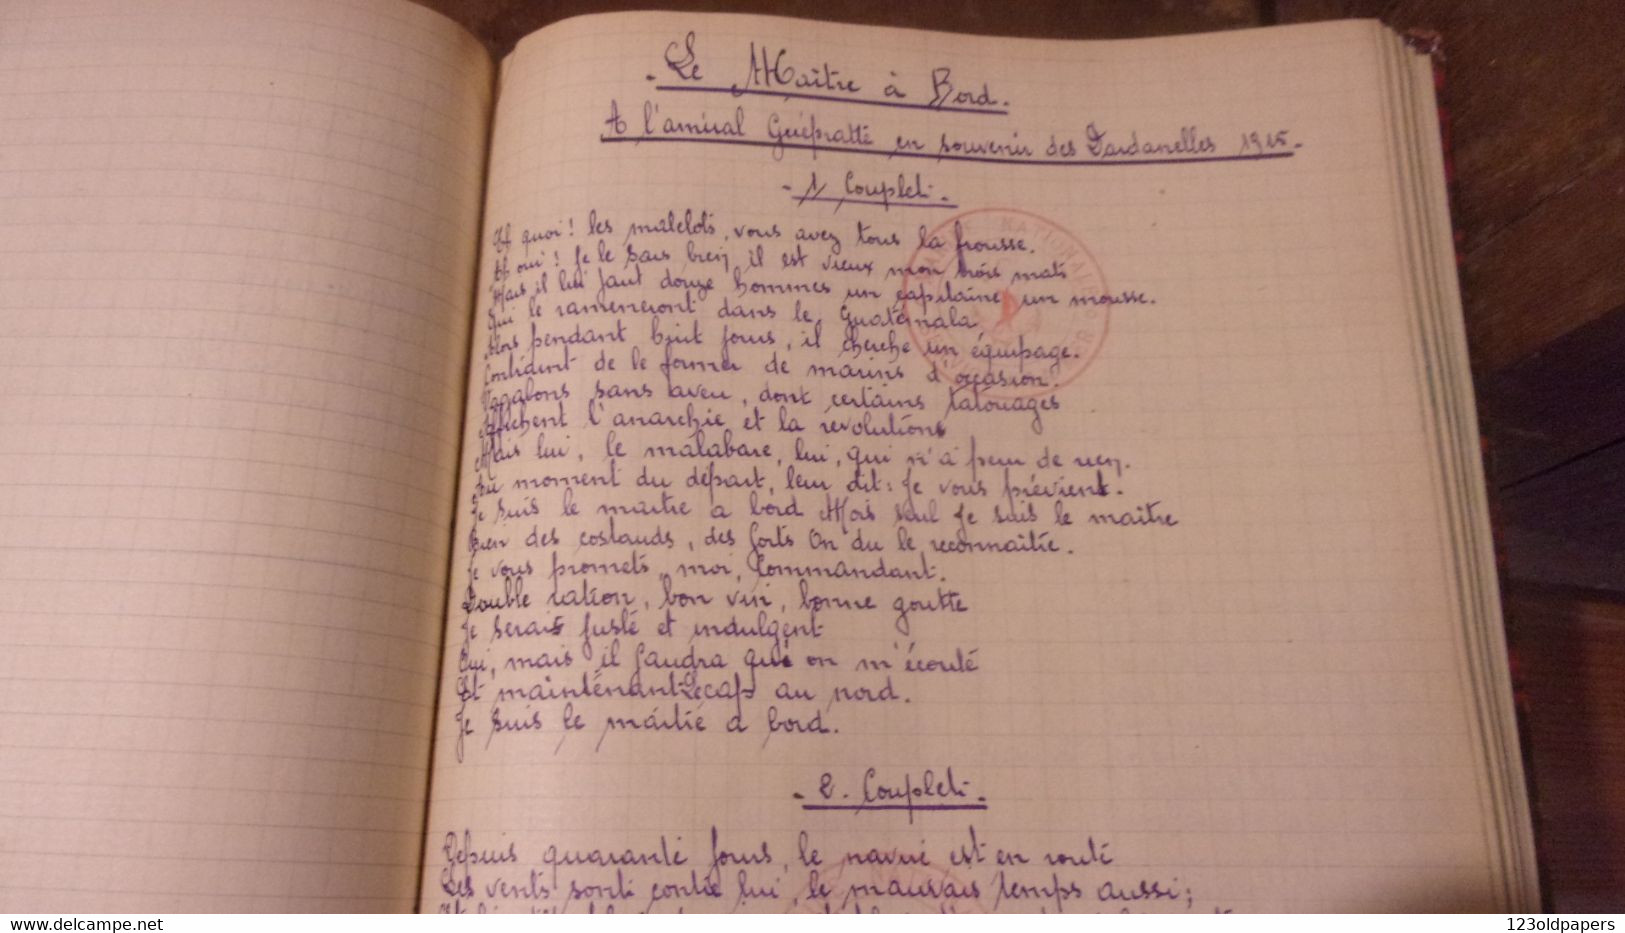 - Le Maître à Bord.
A l'amiral Guépratté en souvenir des Dardanelles 1915.
- 1/ Couplet.
quoi! les matelots, vous avez tous la frousse.
oui! Je le sais bien il est vieux mon trois mats
Mais il lui faut douze hommes un capitaine, un mousse.
Qui le ramèneront dans le Guatémala
Alors pendant huit jours, il cherche un équipage.
Content de le former de marins d'occasion.
Vagabons sans aveu, dont certains tatouages
Affichent l'anarchie et la revolution
Mais lui, le malabare, lui, qui n'a peur de rien.
Au moment du départ, leur dit: Je vous préviens.
Je suis le maitre a bord Mois seul Je suis le maitre
Bien des costauds, des forts On du le reconnaitre.
Je vous promets, moi, Commandant.
Double ration, bon vin, bonne goutte
Je serais juste et indulgent
Oui, mais il faudra qu'on m'écouté
Et maintenant Le cap au nord.
Je suis le maitre a bord.
- 2. Couplet -
Depuis quarante jours, le navire est en route
Les vents sont contre lui, le mauvais temps aussi;
123oldpapers